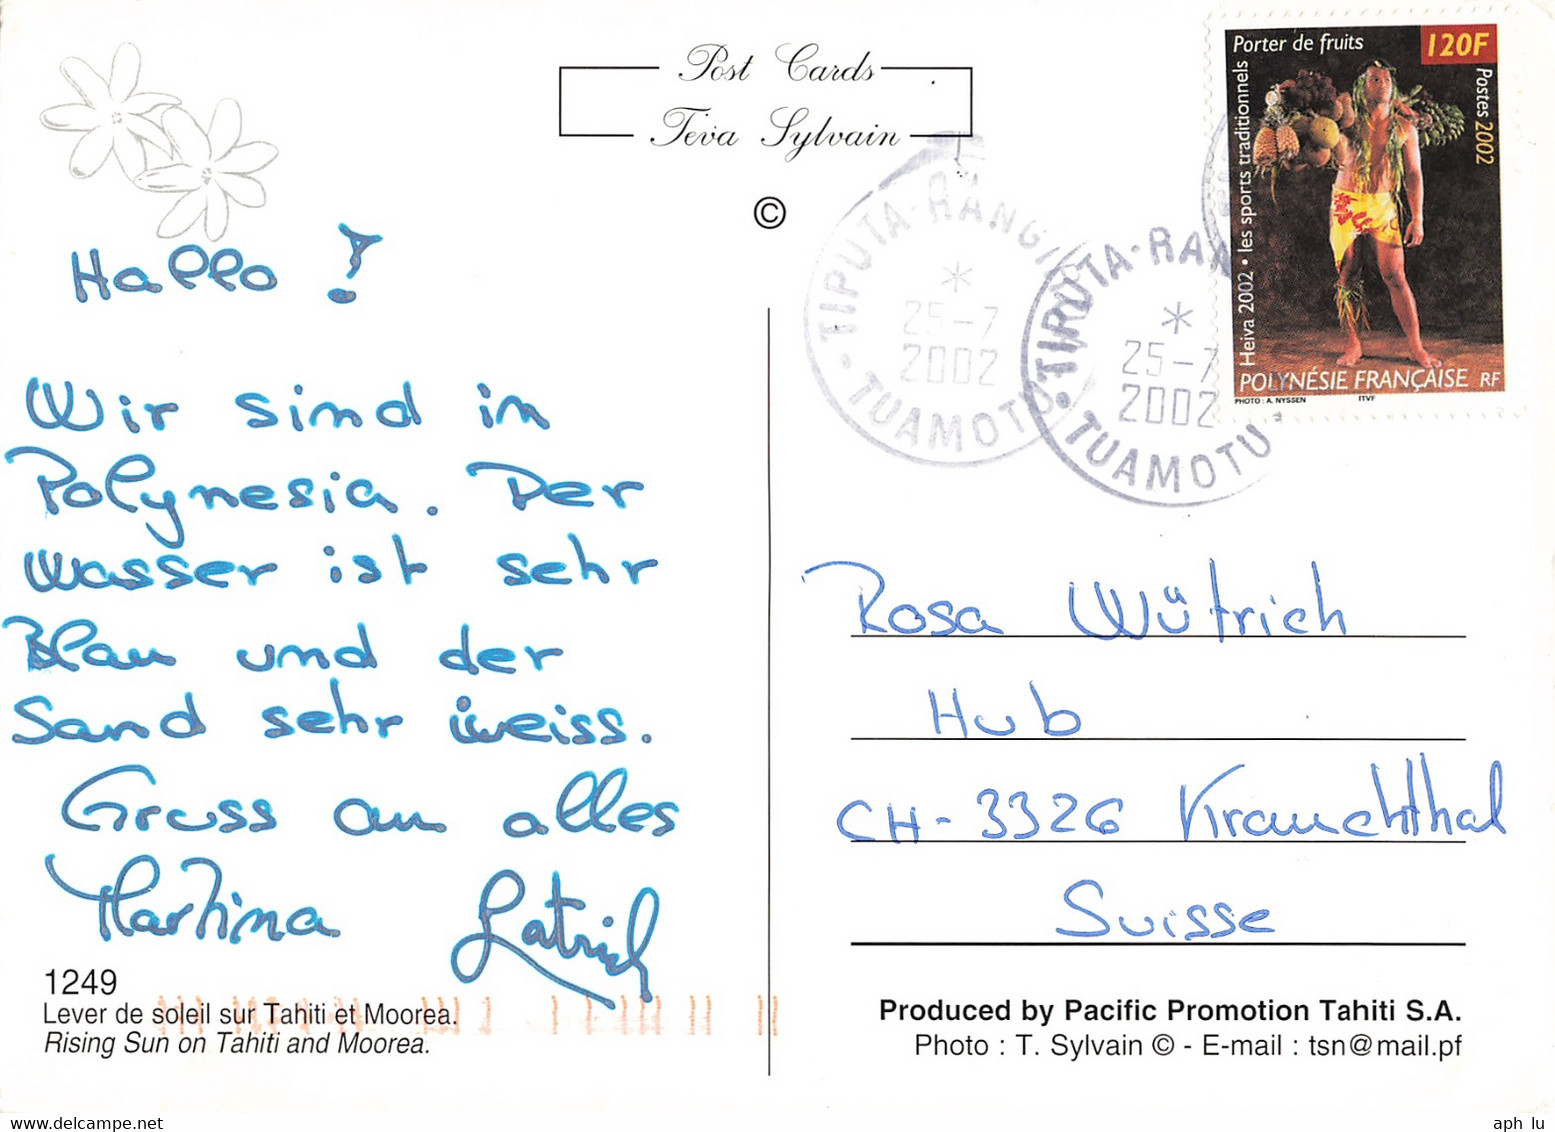 Post Cards
Teva Sylvain
©
Porter de fruits
120F
Postes 2002
Heiva 2002 • les sports traditionnels
POLYNÉSIE FRANÇAISE RF
PHOTO : A. NYSSEN ITVF
TIPUTA-RANGI
*
25-7
2002
TUAMOTU
TIPUTA-RAN
*
25-7
2002
TUAMOTU
Hallo !
Wir sind in
Polynesia. Der
Wasser ist sehr
Blau und der
Sand sehr weiss.
Gruss an alles
Martina
Rosa Wütrich
Hub
CH-3326 Krauchthal
Suisse
1249
Lever de soleil sur Tahiti et Moorea.
Rising Sun on Tahiti and Moorea.
Produced by Pacific Promotion Tahiti S.A.
Photo : T. Sylvain © - E-mail : tsn@mail.pf
www.delcampe.net
aph lu